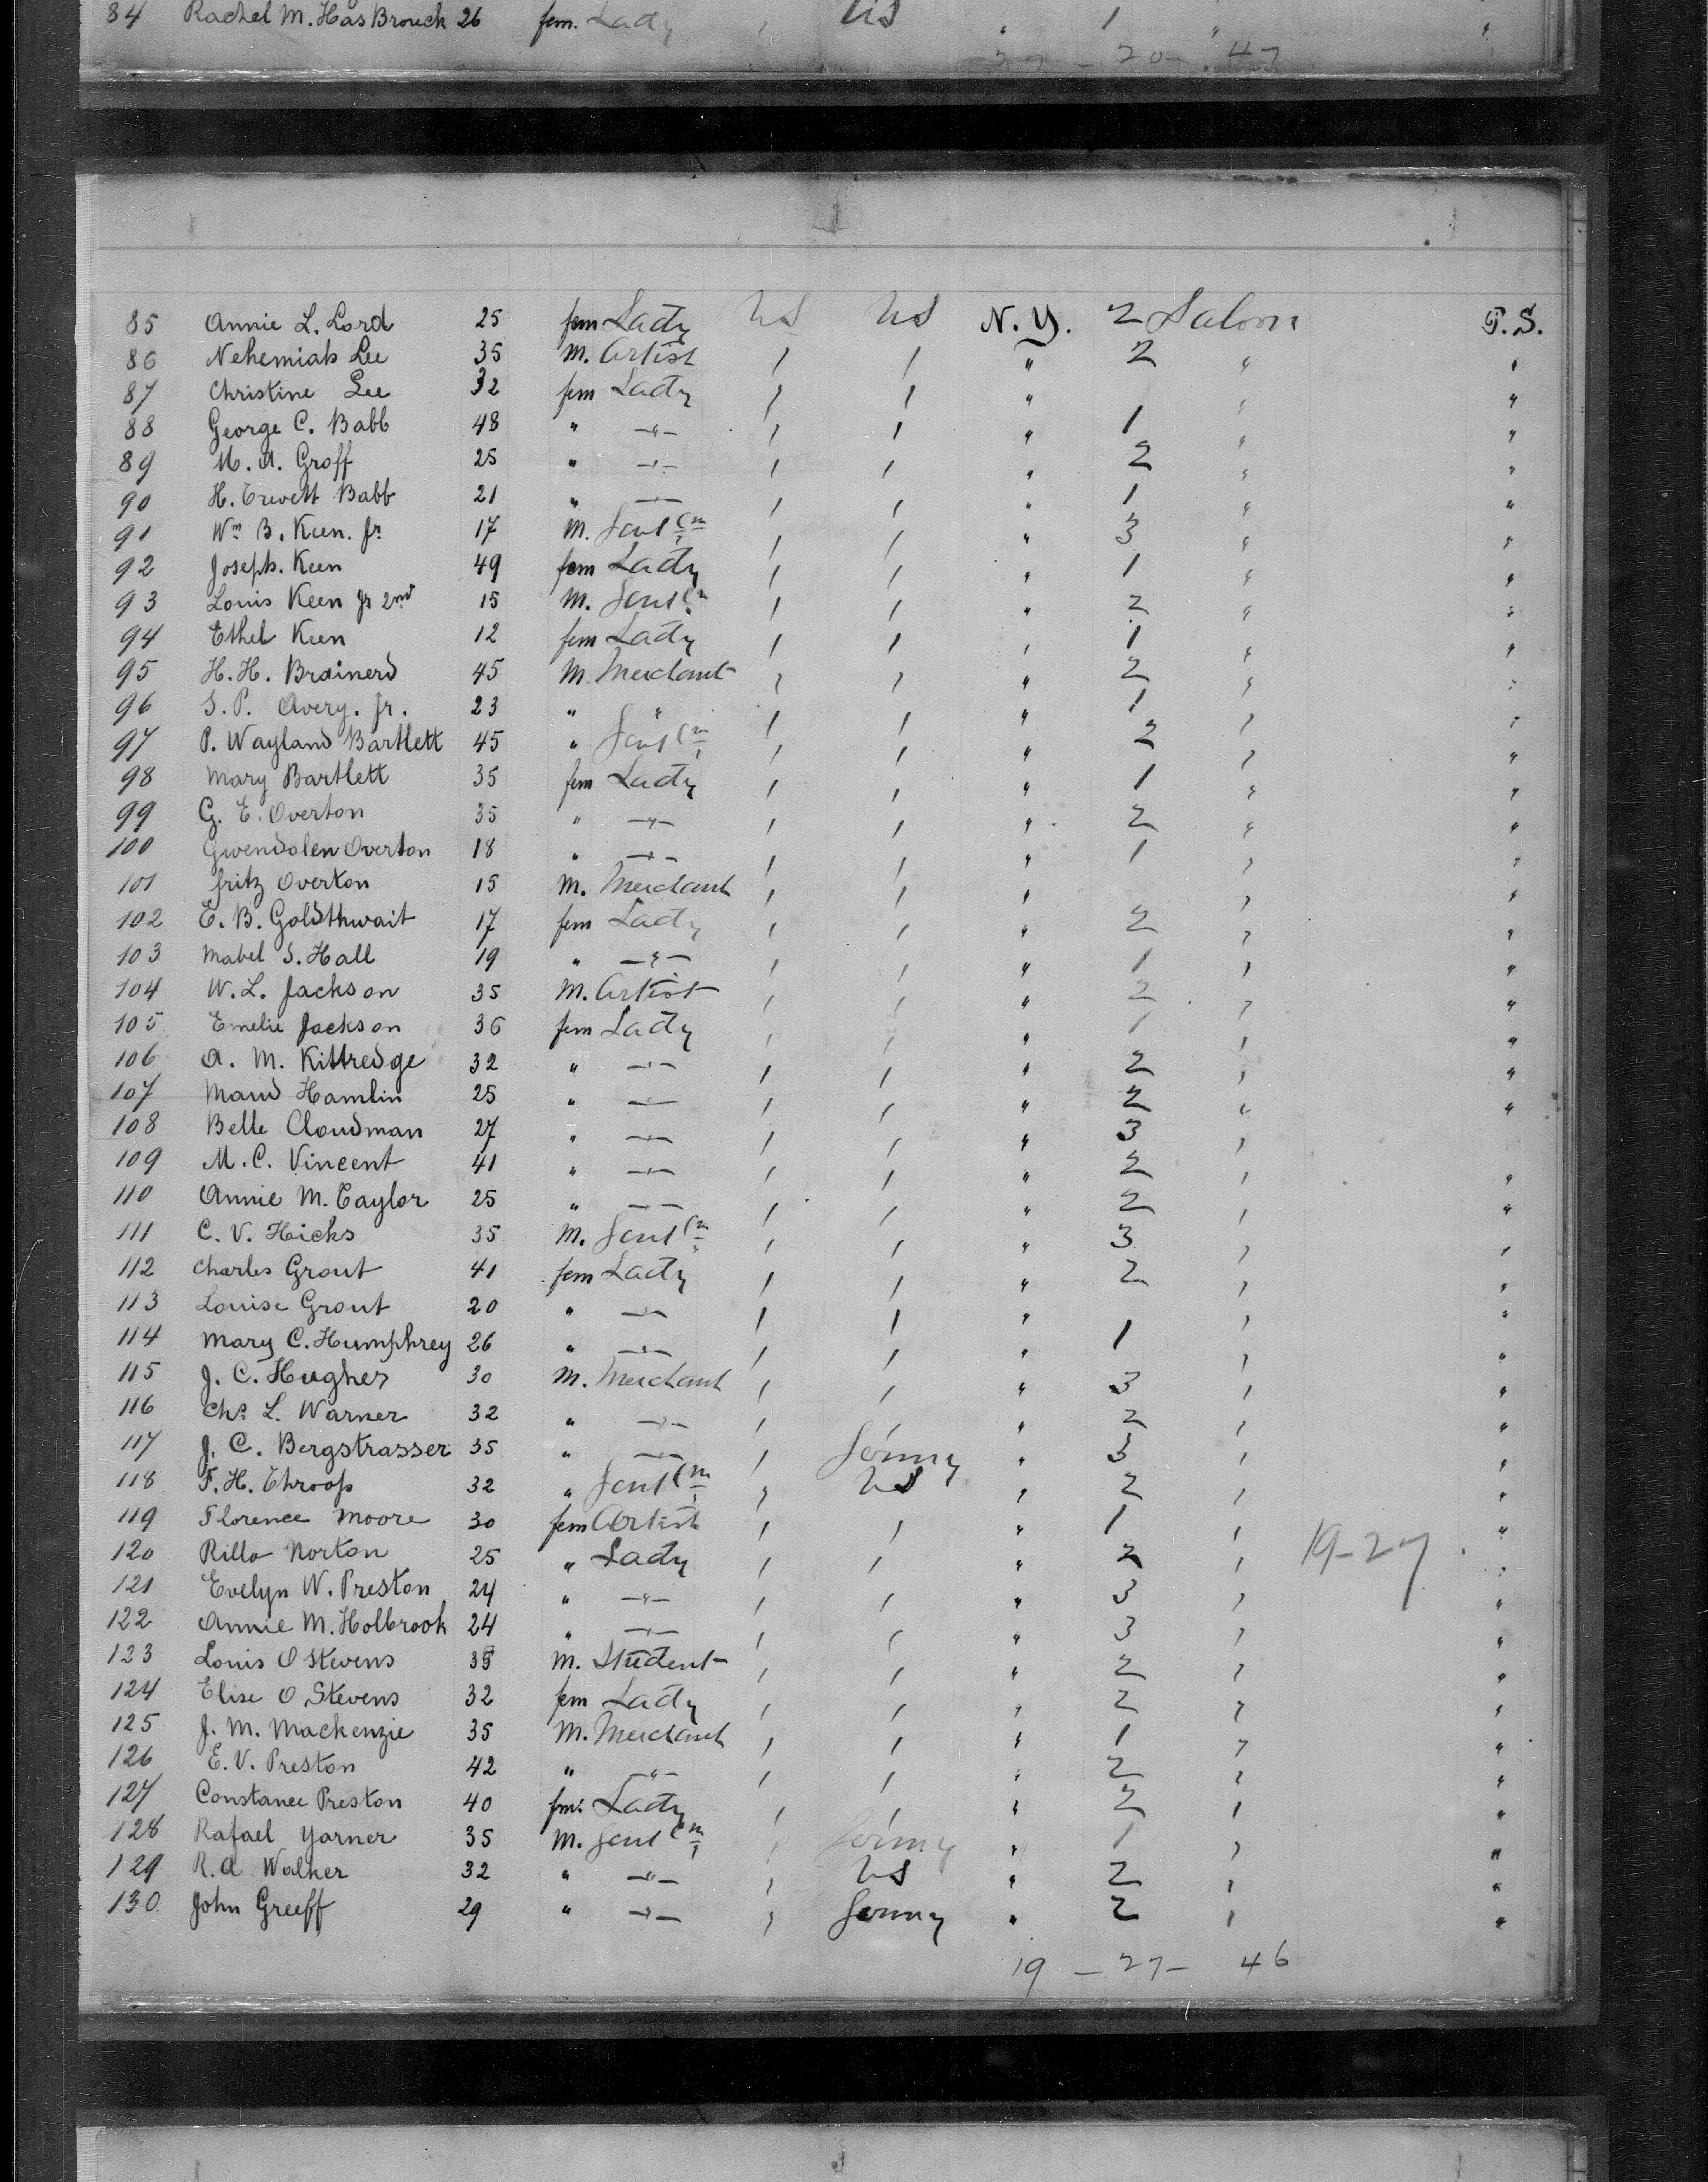 84 Rachel M. HasBrouck 26 fem. Lady ' US " 1 " "
27 - 20 - 47
85 Annie L. Lord 25 fem Lady US US N.Y. 2 Saloon P.S.
86 Nehemiah Lee 35 M. Artist / / " 2 " "
87 Christine Lee 32 fem Lady / / " " "
88 George C. Babb 48 " —"— / / " 1 " "
89 M. A. Groff 25 " —"— / / " 2 " "
90 H. Trevett Babb 21 " —"— / / " 1 " "
91 Wm B. Keen. Jr. 17 M. Gentlm / / " 3 " "
92 Joseph. Keen 49 fem Lady / / " 1 " "
93 Louis Keen Jr 2nd 15 M. Gentlm / / " 2 " "
94 Ethel Keen 12 fem Lady / / " 1 " "
95 H. H. Brainerd 45 M. Merchant / / " 2 " "
96 S. P. Avery. Jr. 23 " " / / " 1 " "
97 P. Wayland Bartlett 45 " Gentlm / / " 2 " "
98 Mary Bartlett 35 fem Lady / / " 1 " "
99 G. E. Overton 35 " —"— / / " 2 " "
100 Gwendolen Overton 18 " —"— / / " 1 " "
101 Fritz Overton 15 M. Merchant / / " " "
102 E. B. Goldthwait 17 fem Lady / / " 2 " "
103 Mabel S. Hall 19 " —"— / / " 1 " "
104 W. L. Jackson 35 M. Artist / / " 2 " "
105 Emelie Jackson 36 fem Lady / / " 1 " "
106 A. M. Kittredge 32 " —"— / / " 2 " "
107 Maud Hamlin 25 " —"— / / " 2 " "
108 Belle Cloudman 27 " —"— / / " 3 "
109 M. C. Vincent 41 " —"— / / " 2 " "
110 Annie M. Taylor 25 " —"— / / " 2 " "
111 C. V. Hicks 35 M. Gentlm / / " 3 " "
112 Charles Grout 41 fem Lady / / " 2 " "
113 Louise Grout 20 " —"— / / " " "
114 Mary C. Humphrey 26 " —"— / / " 1 " "
115 J. C. Hughes 30 M. Merchant / / " 3 " "
116 Chs. L. Warner 32 " —"— / / " 2 " "
117 J. C. Bergstrasser 35 " —"— / Germy " 3 " "
118 T. H. Throop 32 " Gentlm / US " 2 " "
119 Florence Moore 30 fem Artist / / " 1 " "
120 Rillo Norton 25 " Lady / / " 2 " 19-27 "
121 Evelyn W. Preston 24 " —"— / / " 3 " "
122 Annie M. Holbrook 24 " —"— / / " 3 " "
123 Louis O Stevens 35 M. Student / / " 2 " "
124 Elise O Stevens 32 fem Lady / / " 2 " "
125 J. M. Mackenzie 35 M. Merchant / / " 1 " "
126 E. V. Preston 42 " —"— / / " 2 " "
127 Constance Preston 40 fm. Lady / / " 2 " "
128 Rafael Yarner 35 M. Gentlm / Germy " 1 " "
129 R. A Walker 32 " —"— / US " 2 " "
130 John Greeff 29 " —"— / Germy " 2 " "
19 - 27 - 46